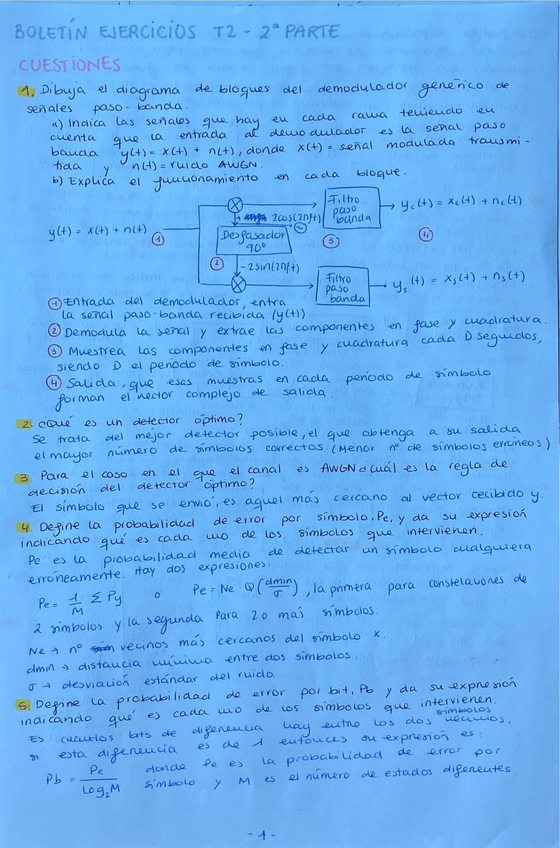 BOLETÍN EJERCICIOS T2 - 2ª PARTE
CUESTIONES
1. Dibuja el diagrama de bloques del demodulador genérico de
señales paso-banda.
a) Indica las señales que hay en cada rama teniendo en
cuenta que la entrada al demodulador es la señal paso
banda y(t) = x(t) + n(t), donde x(t) = señal modulada transmi-
tida y n(t) = ruido AWGN.
b) Explica el funcionamiento en cada bloque.
y(t) = x(t) + n(t)
①
2cos(2πft)
Desfasador
90º
②
-2sin(2πft)
Filtro
paso
banda
③
yc(t) = xc(t) + nc(t)
④
Filtro
paso
banda
ys(t) = xs(t) + ns(t)
① Entrada del demodulador, entra
la señal paso-banda recibida (y(t))
② Demodula la señal y extrae las componentes en fase y cuadratura.
③ Muestrea las componentes en fase y cuadratura cada D segundos,
siendo D el periodo de símbolo.
④ Salida, que esas muestras en cada periodo de símbolo
forman el vector complejo de salida.
2. ¿Qué es un detector óptimo?
Se trata del mejor detector posible, el que obtenga a su salida
el mayor número de símbolos correctas (Menor nº de símbolos erróneos)
3. Para el caso en el que el canal es AWGN ¿cuál es la regla de
decisión del detector óptimo?
El símbolo que se envió, es aquel más cercano al vector recibido y.
4. Define la probabilidad de error por símbolo, Pe, y da su expresión
indicando qué es cada uno de los símbolos que intervienen.
Pe es la probabilidad media de detectar un símbolo cualquiera
erróneamente. Hay dos expresiones:
Pe = 1/M Σ Py o Pe = Ne · Q(dmin/σ), la primera para constelaciones de
2 símbolos y la segunda para 2 o más símbolos.
Ne → nº vecinos más cercanos del símbolo x.
dmin → distancia mínima entre dos símbolos.
σ → desviación estándar del ruido.
5. Define la probabilidad de error por bit, Pb y da su expresión
indicando qué es cada uno de los símbolos que intervienen.
Es cuántos bits de diferencia hay entre los dos símbolos vecinos,
si esta diferencia es de 1 entonces su expresión es:
Pb = Pe/Log₂M donde Pe es la probabilidad de error por
símbolo y M es el número de estados diferentes
-1-